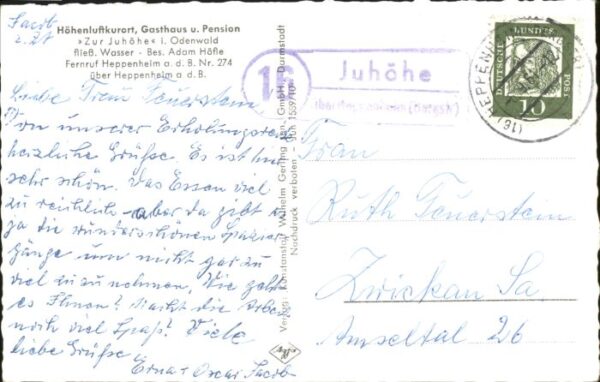 Jacob
z. Zt
Höhenluftkurort, Gasthaus u. Pension
»Zur Juhöhe« i. Odenwald
fließ. Wasser - Bes. Adam Höfle
Fernruf Heppenheim a. d. B. Nr. 274
über Heppenheim a. d. B.
Liebe Frau Feuerstein
Von unserer Erholungsreise
herzliche Grüße. Es ist hier
sehr schön. Das Essen viel
zu reichlich - aber da gibt es
ja die wunderschönen Spazier
gänge um nicht gar zu
viel zu zu nehmen. Wie geht
es Ihnen? Macht die Arbeit
noch viel Spaß? Viele
liebe Grüße
Erna u Oscar Jacob
Verlag: Kunstanstalt Wilhelm Gerling, GmbH., Darmstadt
Nachdruck verboten
16
Juhöhe
DEUTSCHE
BUNDES
POST
10
Frau
Ruth Feuerstein
Zwickau Sa
Amseltal 26